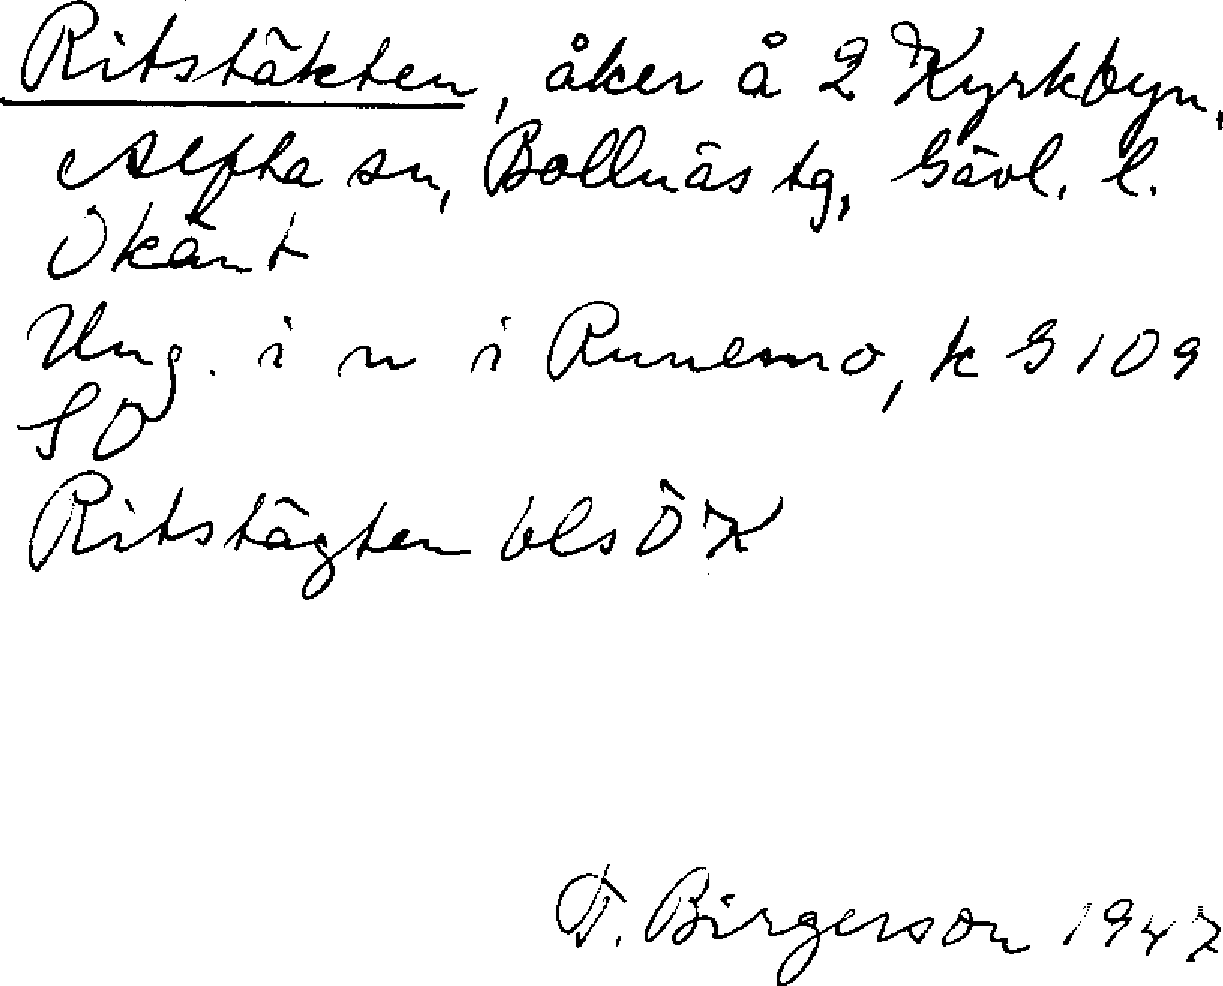 Ritstäkten, åker å 2 Kyrkbyn,
Alfta sn, Bollnäs tg, Gävl. l.
Okänt
Ung. i n i Runemo, k G 109
SO
Ritstägten bls ÖK
F. Birgerson 1947